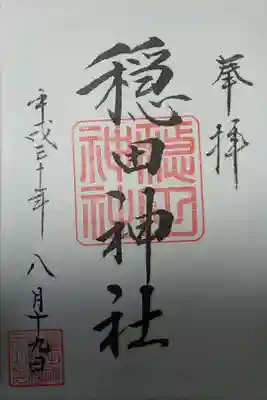 奉拝
穏田神社
平成三十年
八月十九日